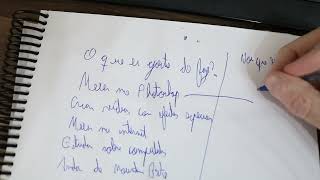 O que eu gosto de fazer? Por que?
Mexer no Photoshop
Criar vídeos com efeitos especiais
Mexer na internet
Estudar sobre computador
Andar de Mountain Bike